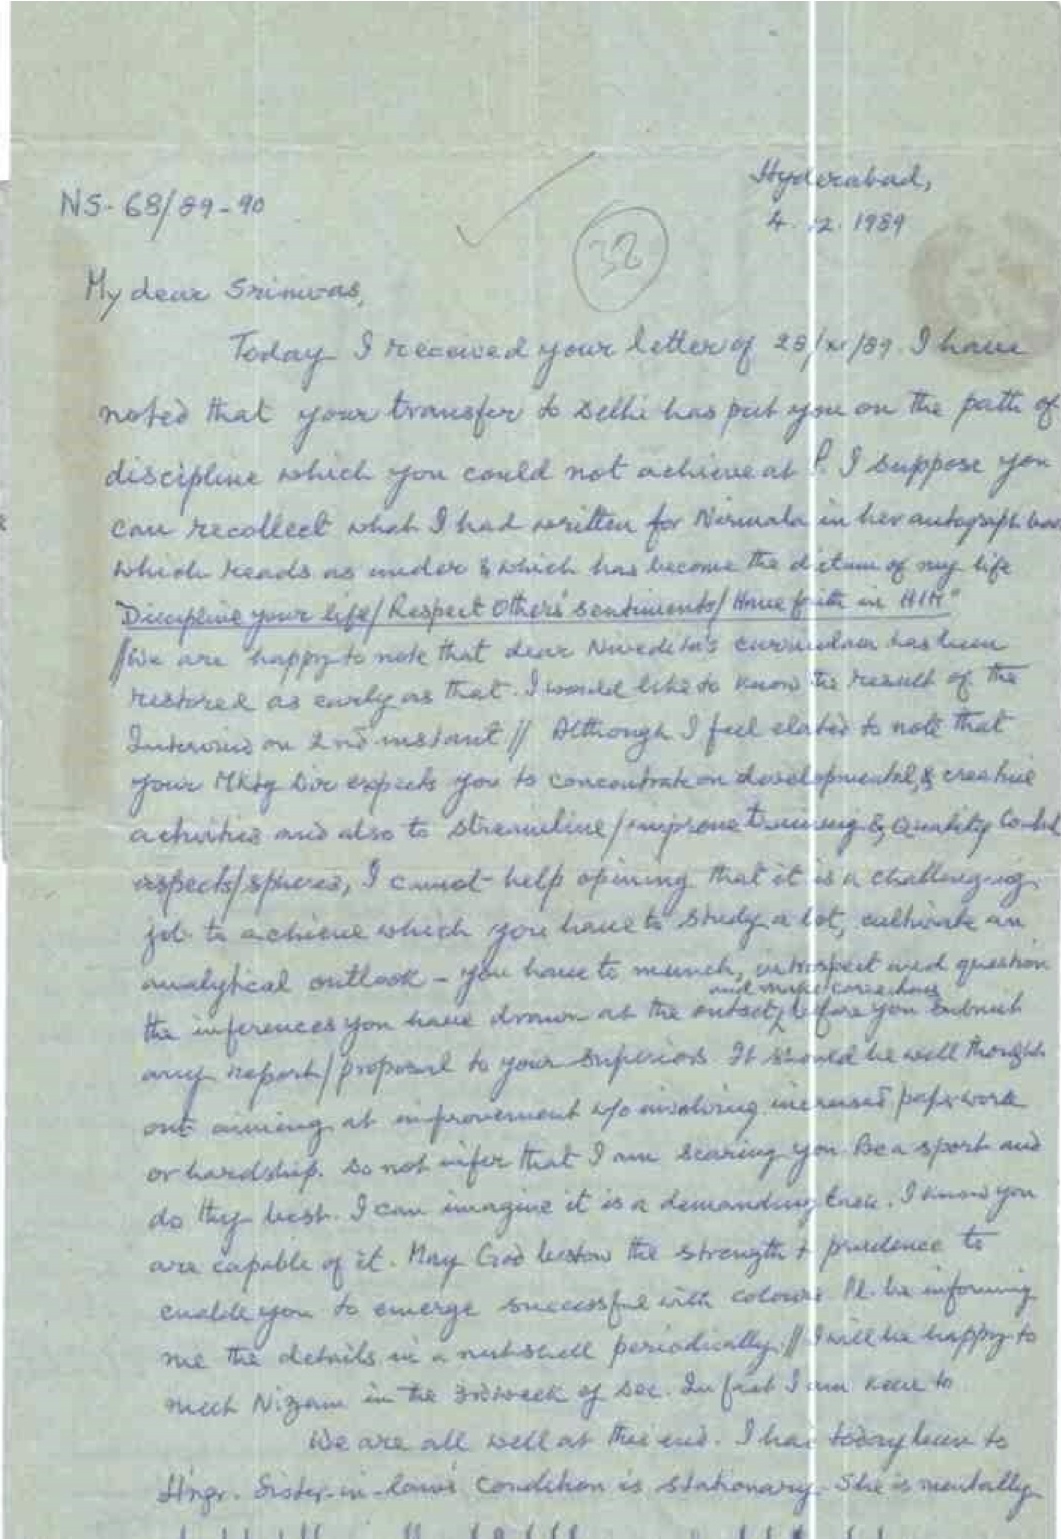 Hyderabad,
NS-68/89-90
4.12.1989
32
My dear Srinivas,
Today I received your letter of 28/XI/89. I have
noted that your transfer to Delhi has put you on the path of
discipline which you could not achieve at P. I suppose you
can recollect what I had written for Nirmala in her autograph
which reads as under & which has become the dictum of my life
"Discipline your life/Respect Others' sentiments/Have faith in HIM"
//We are happy to note that dear Nivedita's curriculum has been
restored as early as that. I would like to know the result of the
Interview on 2nd instant// Although I feel elated to note that
your Mktg Dir expects you to concentrate on developmental, & creative
activities and also to streamline/improve training & Quality Control
aspects/spheres, I cannot help opining that it is a challenging
job to achieve which you have to study a lot, cultivate an
analytical outlook - you have to munch, introspect and question
and make corrections
the inferences you have drawn at the outset, before you submit
any report/proposal to your superiors. It should be well thought
out aiming at improvement w/o involving increased paper work
or hardship. Do not infer that I am scaring you. Be a sport and
do thy best. I can imagine it is a demanding task. I know you
are capable of it. May God bestow the strength & prudence to
enable you to emerge successful with colours. Pl. be informing
me the details in a nutshell periodically.// I will be happy to
meet Nizam in the 3rd week of Dec. In fact I am keen to
We are all well at this end. I had today been to
Hngr. Sister-in-law's condition is stationary. She is mentally